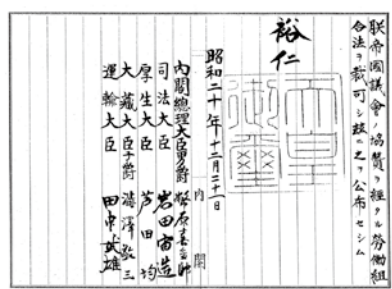 朕帝國議會ノ協賛ヲ經タル勞働組
合法ヲ裁可シ茲ニ之ヲ公布セシム
裕仁
天皇
御璽
昭和二十年十二月二十一日
内閣總理大臣男爵 幣原喜重郎
司法大臣 岩田宙造
厚生大臣 芦田均
大藏大臣子爵 澁澤敬三
運輸大臣 田中武雄
内閣